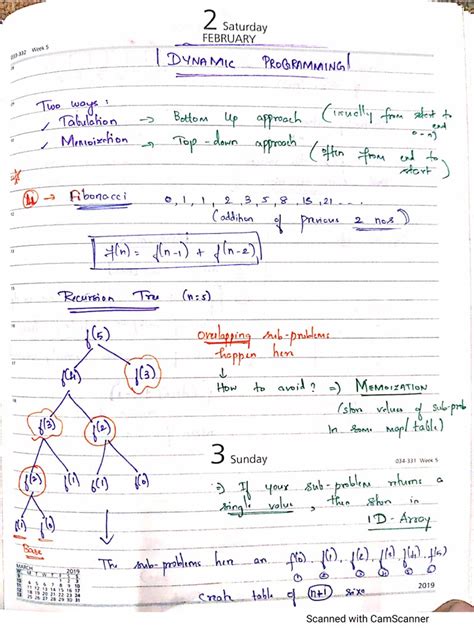 2 Saturday
FEBRUARY
033-332 Week 5
DYNAMIC PROGRAMMING
Two ways :
✓ Tabulation → Bottom Up approach (usually from start to end
0 → n)
✓ Memoization → Top-down approach (often from end to
start)
→ Fibonacci 0, 1, 1, 2, 3, 5, 8, 13, 21 ...
(addition of previous 2 nos)
f(n) = f(n-1) + f(n-2)
Recursion Tree (n=5)
f(5)
Overlapping sub-problems
happen here
f(4) f(3)
↓
How to avoid? => MEMOIZATION
(store values of sub-prob
in some map/table)
f(3) f(2)
3 Sunday
034-331 Week 5
f(2) f(1) f(1) f(0)
If your sub-problem returns a
single value, then store in
1D-Array
f(1) f(0)
Base
The sub-problems here are f(0), f(1), f(2), f(3), f(4), f(5)
create table of (n+1) size
MARCH 2019
2019
Scanned with CamScanner